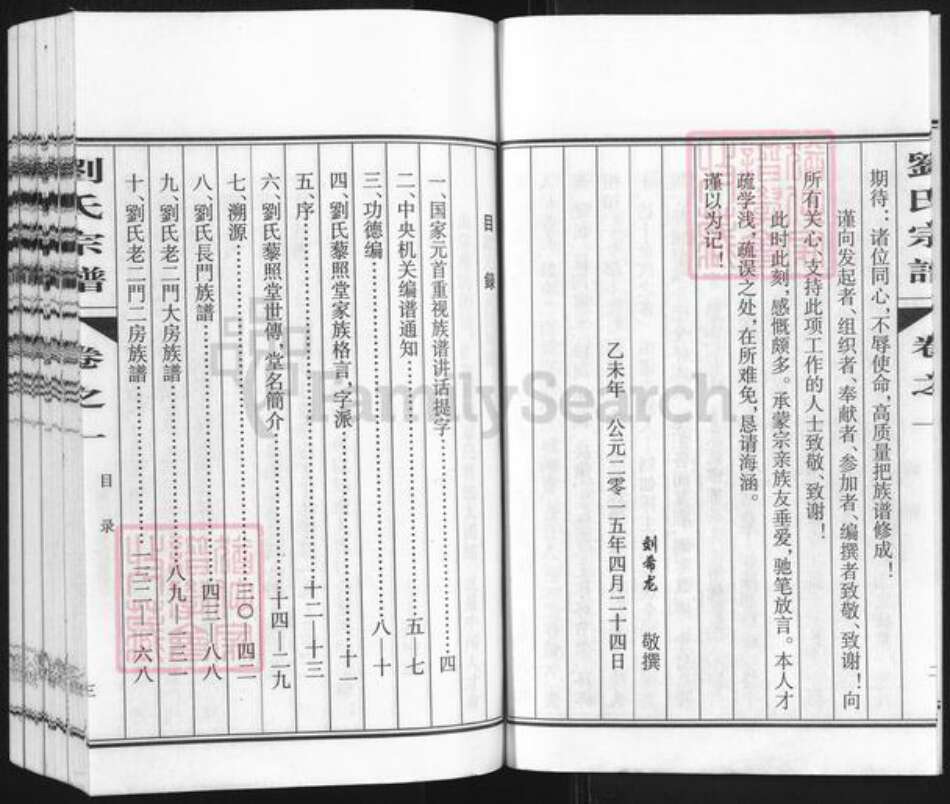 劉氏宗譜
卷之一
期待：诸位同心，不辱使命，高质量把族谱修成！
谨向发起者、组织者、奉献者、参加者、编撰者致敬、致谢！向
所有关心、支持此项工作的人士致敬、致谢！
此时此刻，感慨颇多。承蒙宗亲族友垂爱，驰笔放言。本人才
疏学浅，疏误之处，在所难免，恳请海涵。
谨以为记！
刘希龙 敬撰
乙未年 公元二零一五年四月二十四日
目 録
一、国家元首重视族谱讲话提字……四
二、中央机关编谱通知……五—七
三、功德编……八—十
四、劉氏藜照堂家族格言，字派……十一
五、序……十二—十三
六、劉氏藜照堂世傳，堂名簡介……十四—二九
七、溯源……三〇—四二
八、劉氏長門族譜……四三—八八
九、劉氏老二門大房族譜……八九—一三一
十、劉氏老二門二房族譜……一三二—一六八
劉氏宗譜
卷之一
目录
三
FamilySearch